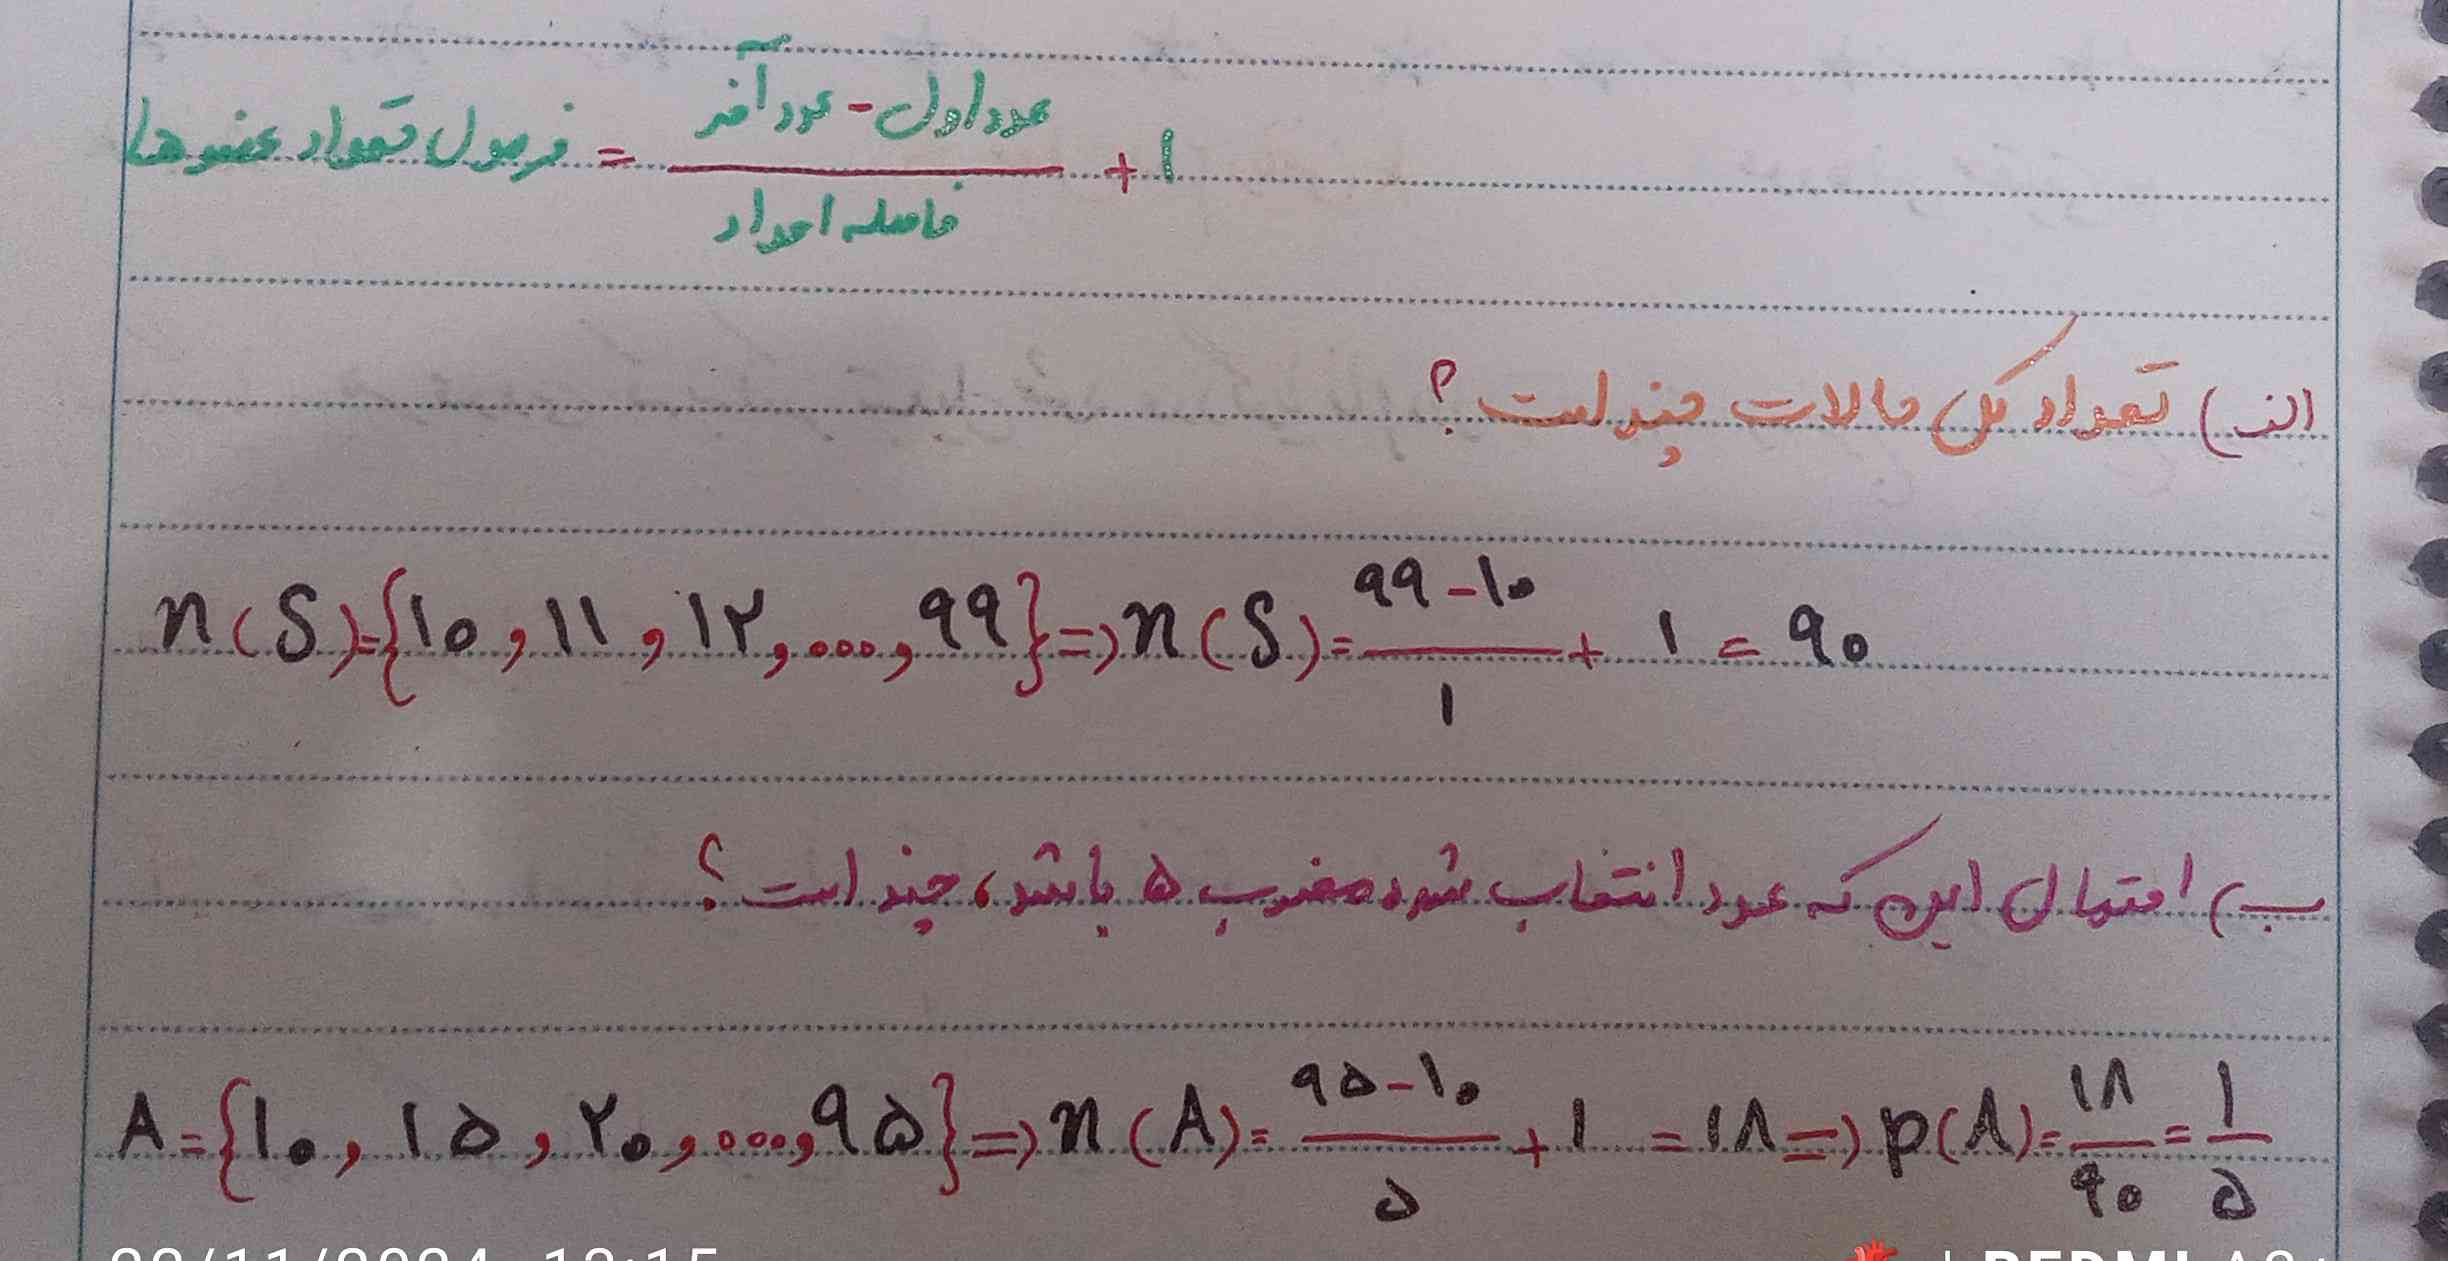 فرمول تعداد عضوها = (عدد آخر - عدد اول) / فاصله اعداد + ۱
الف) تعداد کل حالات چند است؟
n(S)={۱۰, ۱۱, ۱۲, ..., ۹۹} => n(S)= (۹۹-۱۰)/۱ + ۱ = ۹۰
ب) احتمال این که عدد انتخاب شده مضرب ۵ باشد، چند است؟
A={۱۰, ۱۵, ۲۰, ..., ۹۵} => n(A)= (۹۵-۱۰)/۵ + ۱ = ۱۸ => p(A)= ۱۸/۹۰ = ۱/۵